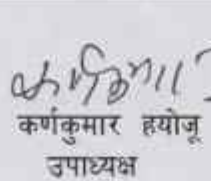 कर्णकुमार हयोजू
उपाध्यक्ष